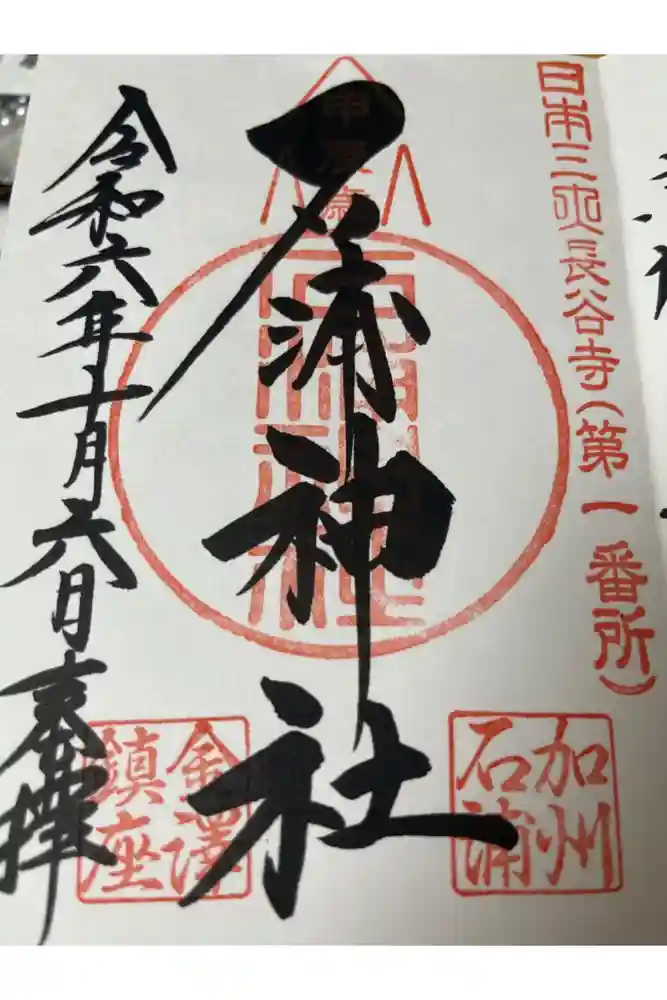 日本三大長谷寺(第一番所)
加州
石浦
甲辰
石浦神社
石浦神社
金澤
鎮座
令和六年十一月六日奉拝